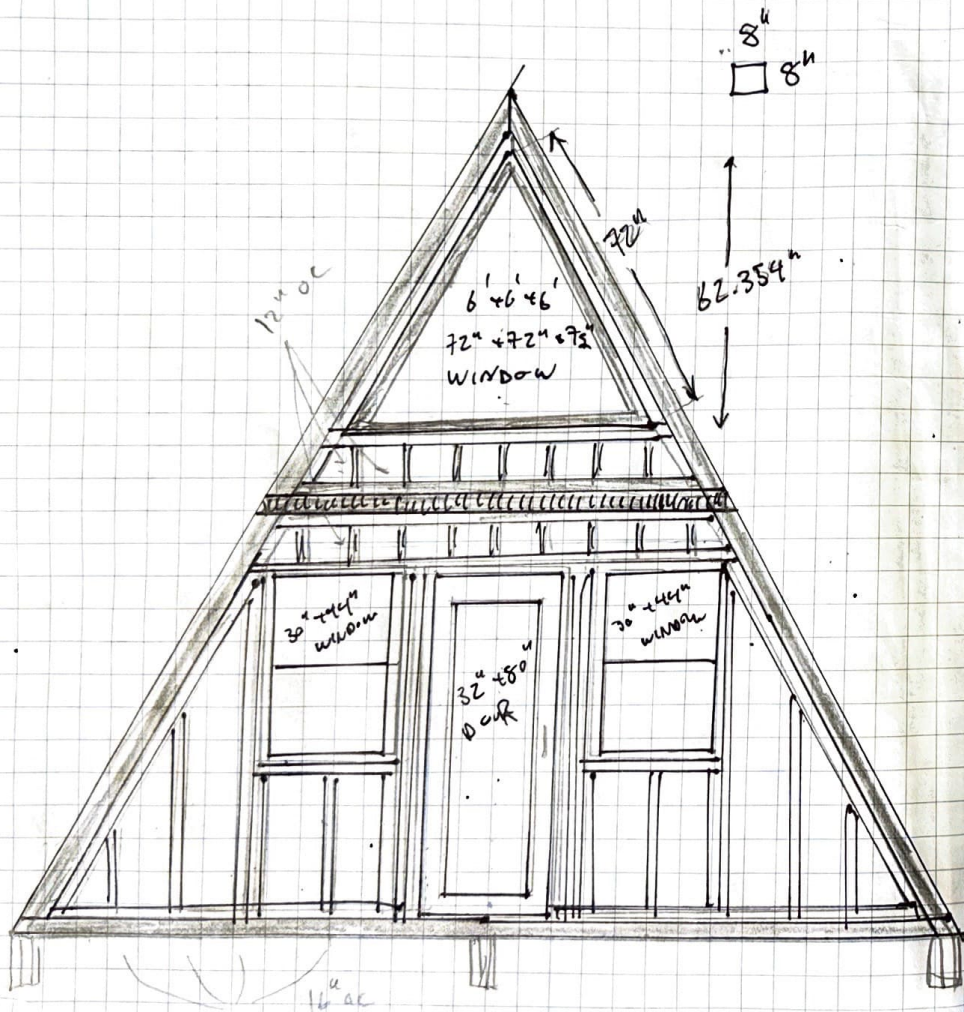 8"
8"
72"
62.354"
12" OC
6' x 6' x 6'
72" x 72" x 72"
WINDOW
30" x 44"
WINDOW
32" x 80"
DOOR
30" x 44"
WINDOW
16" OC